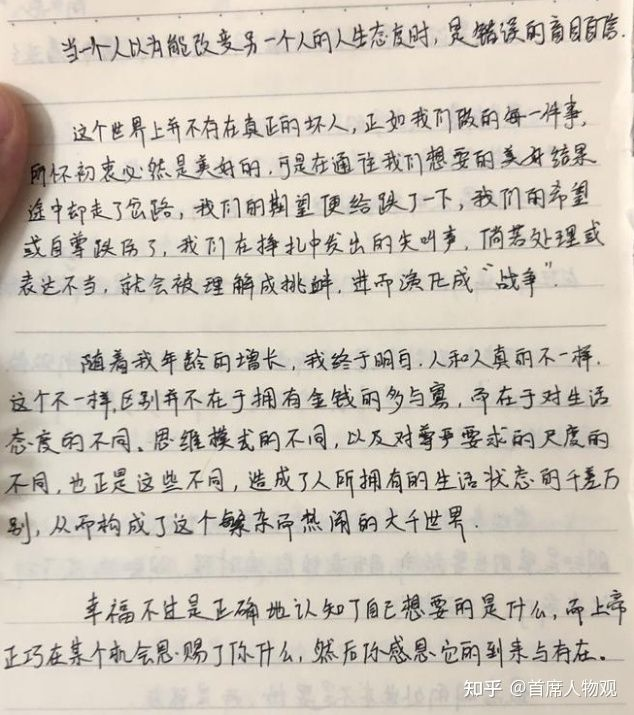 当一个人以为能改变另一个人的人生态度时，是错误的盲目自信.
这个世界上并不存在真正的坏人，正如我们做的每一件事，
所怀初衷必然是美好的，可是在通往我们想要的美好结果
途中却走了岔路，我们的期望便给跌了一下，我们的希望
或自尊跌伤了，我们在挣扎中发出的失叫声，倘若处理或
表达不当，就会被理解成挑衅，进而演化成“战争”.
随着我年龄的增长，我终于明白，人和人真的不一样.
这个不一样，区别并不在于拥有金钱的多与寡，而在于对生活
态度的不同、思维模式的不同，以及对尊严要求的尺度的
不同，也正是这些不同，造成了人所拥有的生活状态的千差万
别，从而构成了这个繁杂而热闹的大千世界.
幸福不过是正确地认知了自己想要的是什么，而上帝
正巧在某个机会恩赐了你什么，然后你感恩它的到来与存在。
知乎 @首席人物观